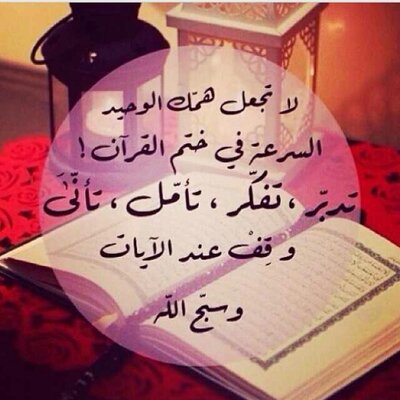 لا تجعل همّك الوحيد
السرعة في ختم القرآن !
تدبّر ، تفكّر ، تأمّل ، تأنّىَ
و قِفْ عند الآيات
وسبّح اللّه